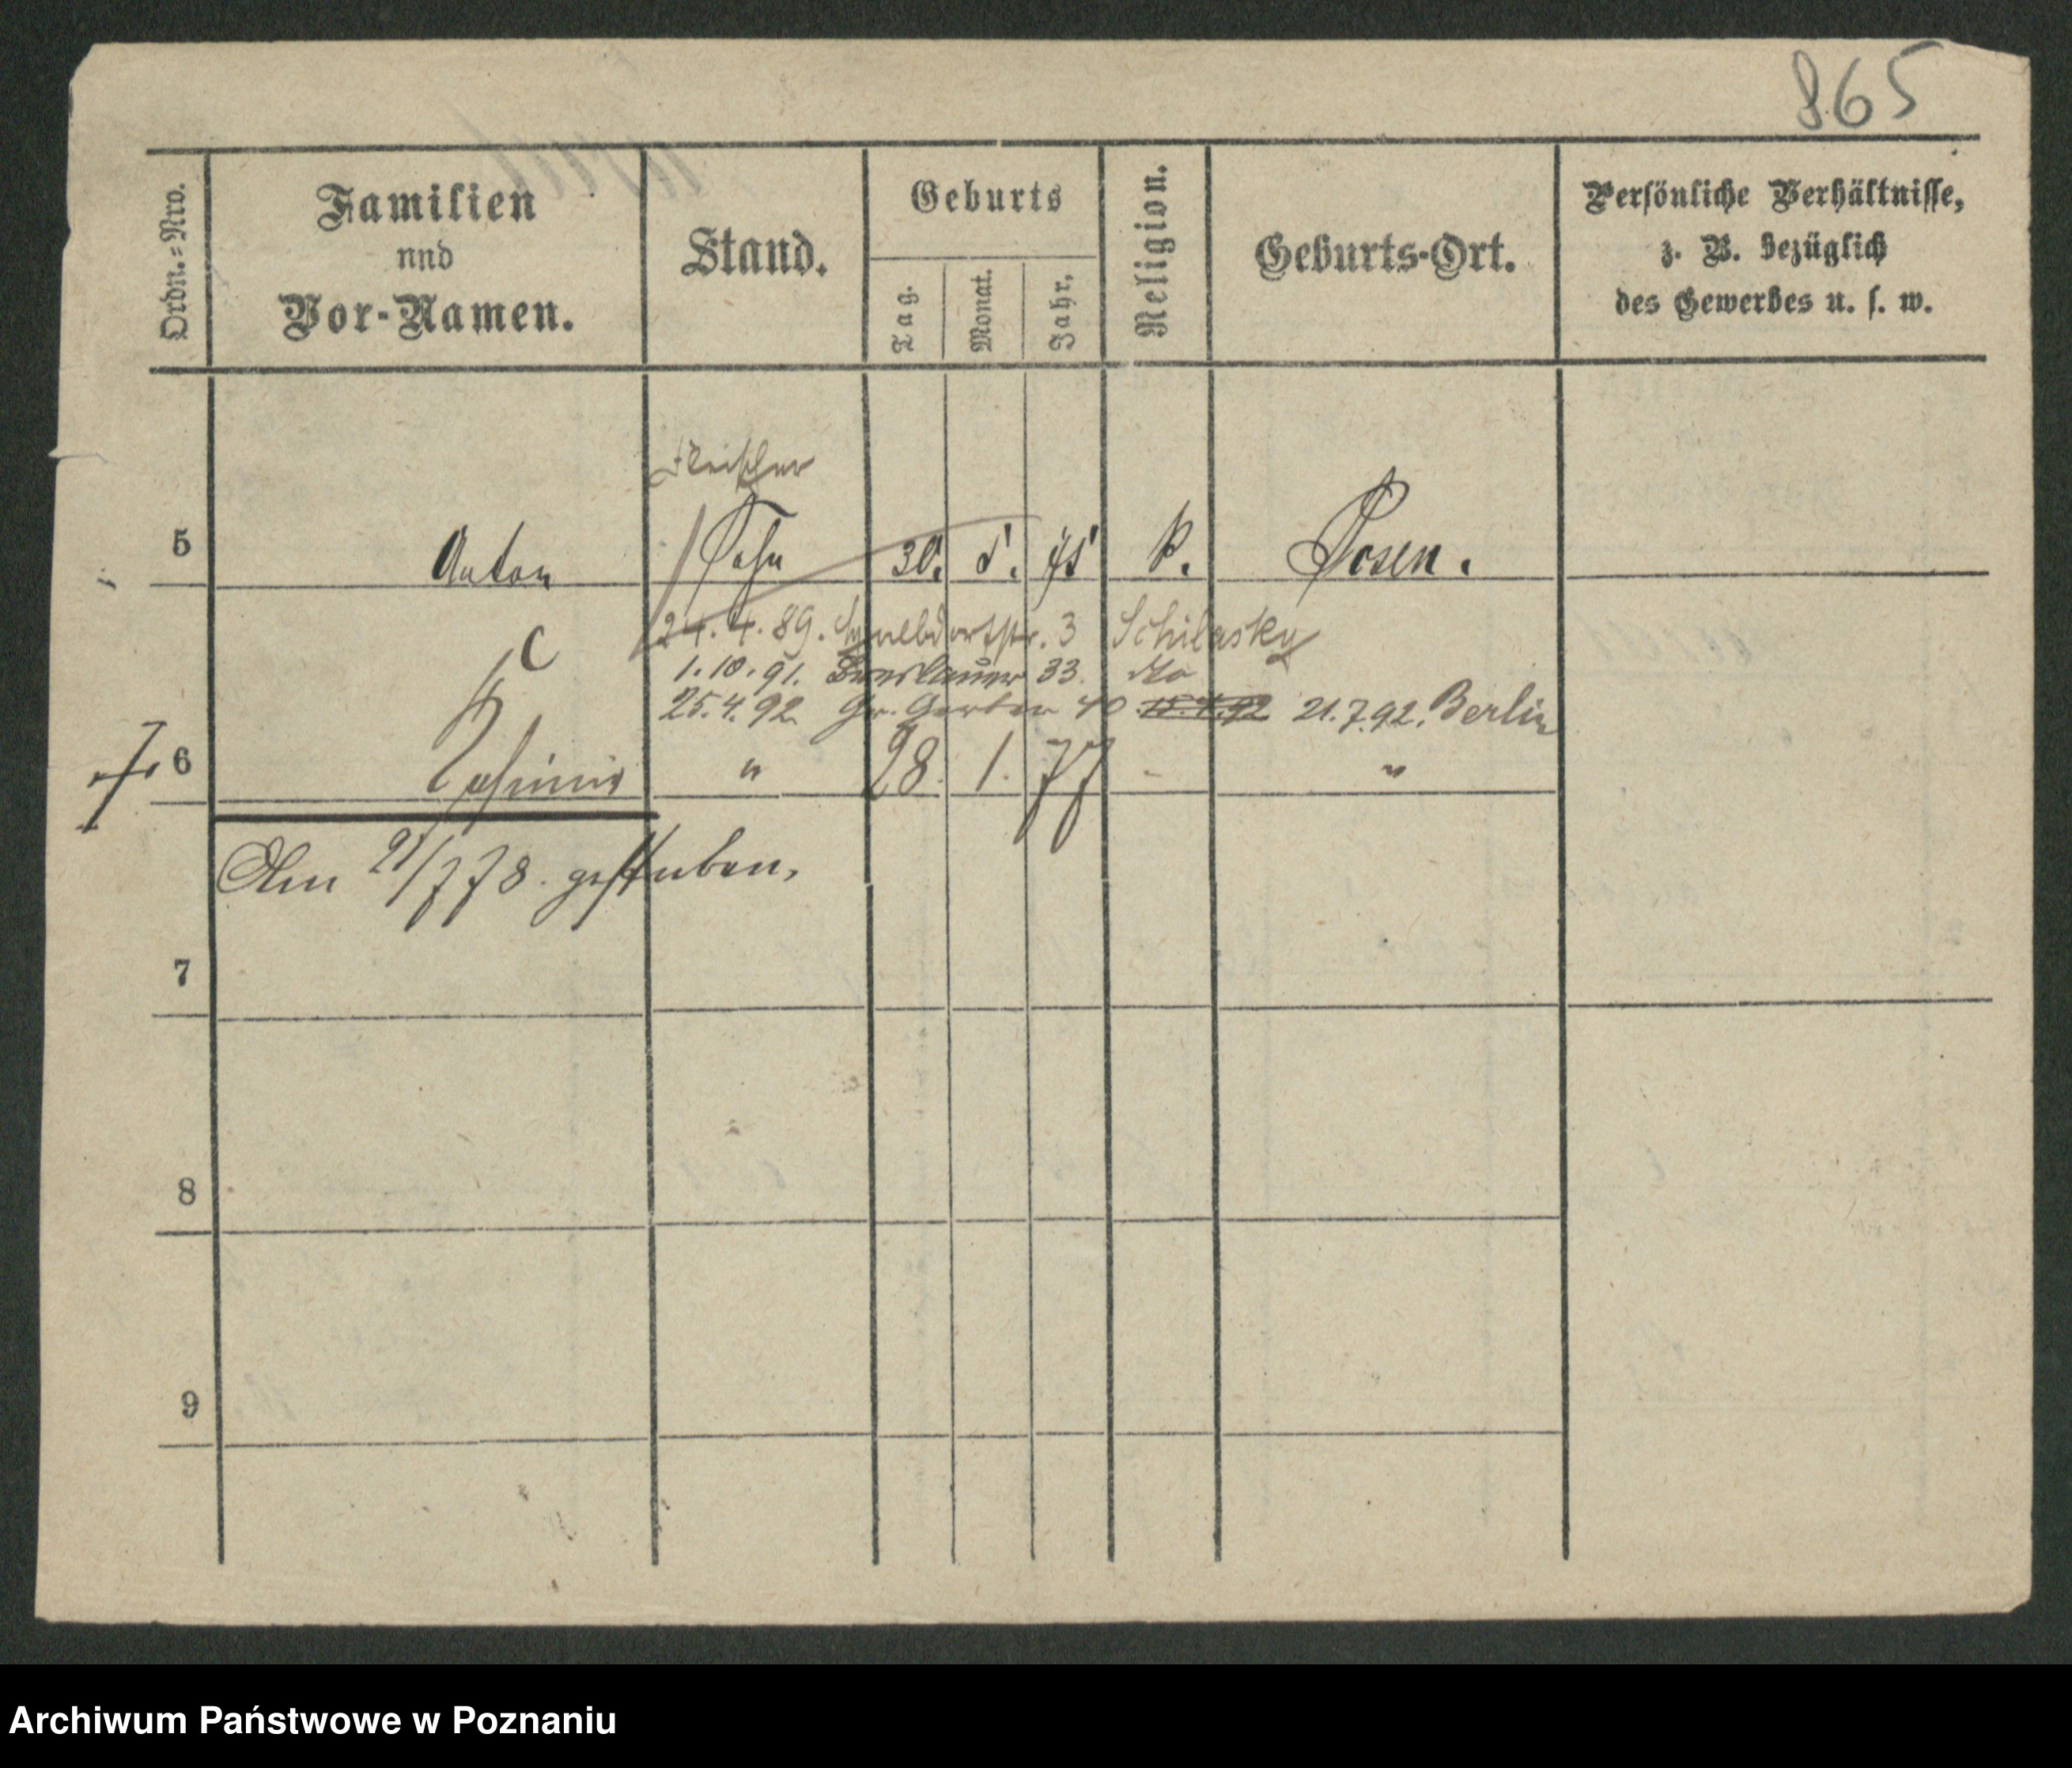 865
Ordn.=Nro.
Familien
und
Vor-Namen.
Stand.
Geburts
Tag.
Monat.
Jahr.
Religion.
Geburts-Ort.
Persönliche Verhältnisse,
z. B. bezüglich
des Gewerbes u. s. w.
Fleischer
5 Anton Sohn 30. 5. k. Posen.
24. 4. 89. 3 Schilasky
1. 10. 91. Breslauer 33.
25. 4. 92 Gr. Gerber 40 15.7.92 21.7.92. Berlin
C
K
6 " 28. 1. 77 - "
Am 21/7 78. gestorben.
7
8
9
Archiwum Państwowe w Poznaniu